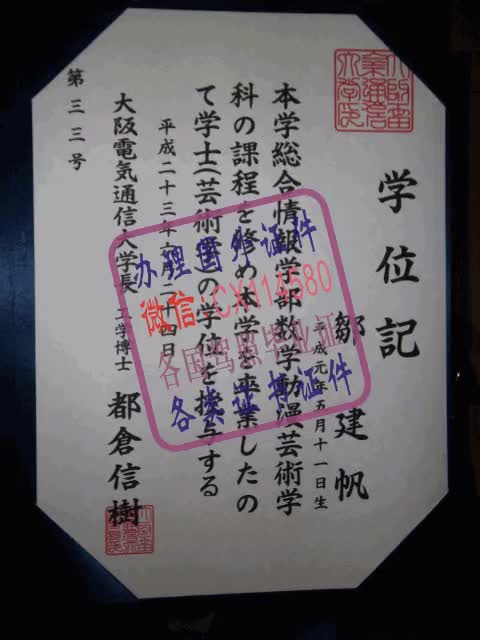 学位記
鄒建帆
平成元年五月十一日生
本学総合情報学部数学動漫芸術学
科の課程を修め本学を卒業したの
て学士(芸術学)の学位を授与する
平成二十三年六月二十四日
大阪電気通信大学長 工学博士 都倉信樹
第三三号
办理国外证件
微信:CX114580
各国驾照毕业证
各类证书证件